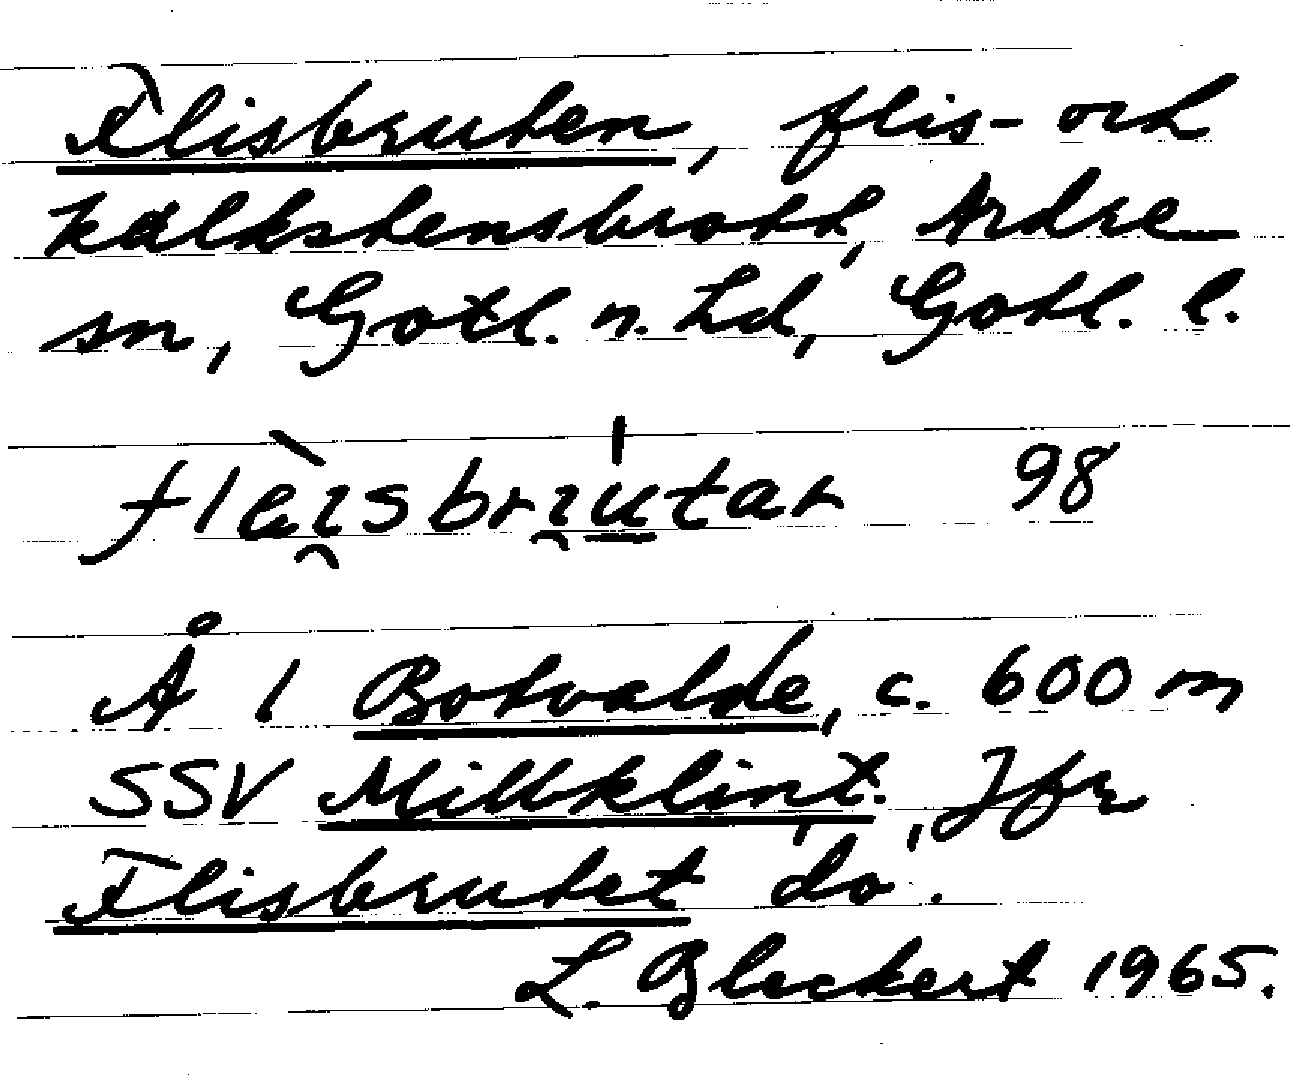 Flisbruten, flis- och
kalkstensbrott, Ardre
sn, Gotl. n. hd, Gotl. l.
flàɪ̯sbrɪ̯u̠tar 98
Å 1 Botvalde, c. 600 m
SSV Millklint. Jfr
Flisbrutet 'do'.
L. Bleckert 1965.